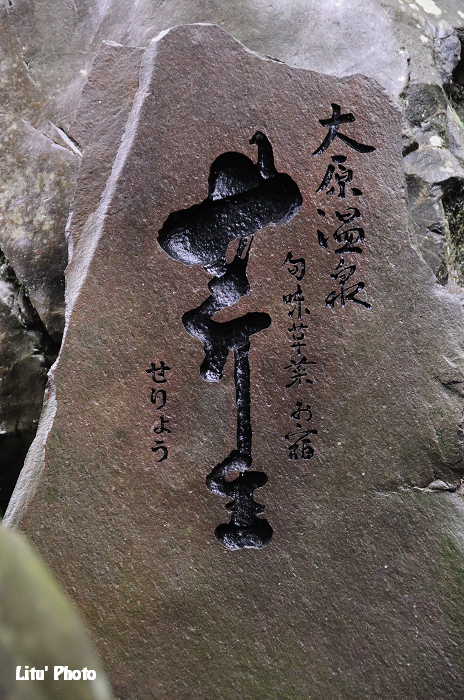 大原温泉
旬味草菜 お宿
芹生
せりょう
Litu' Photo